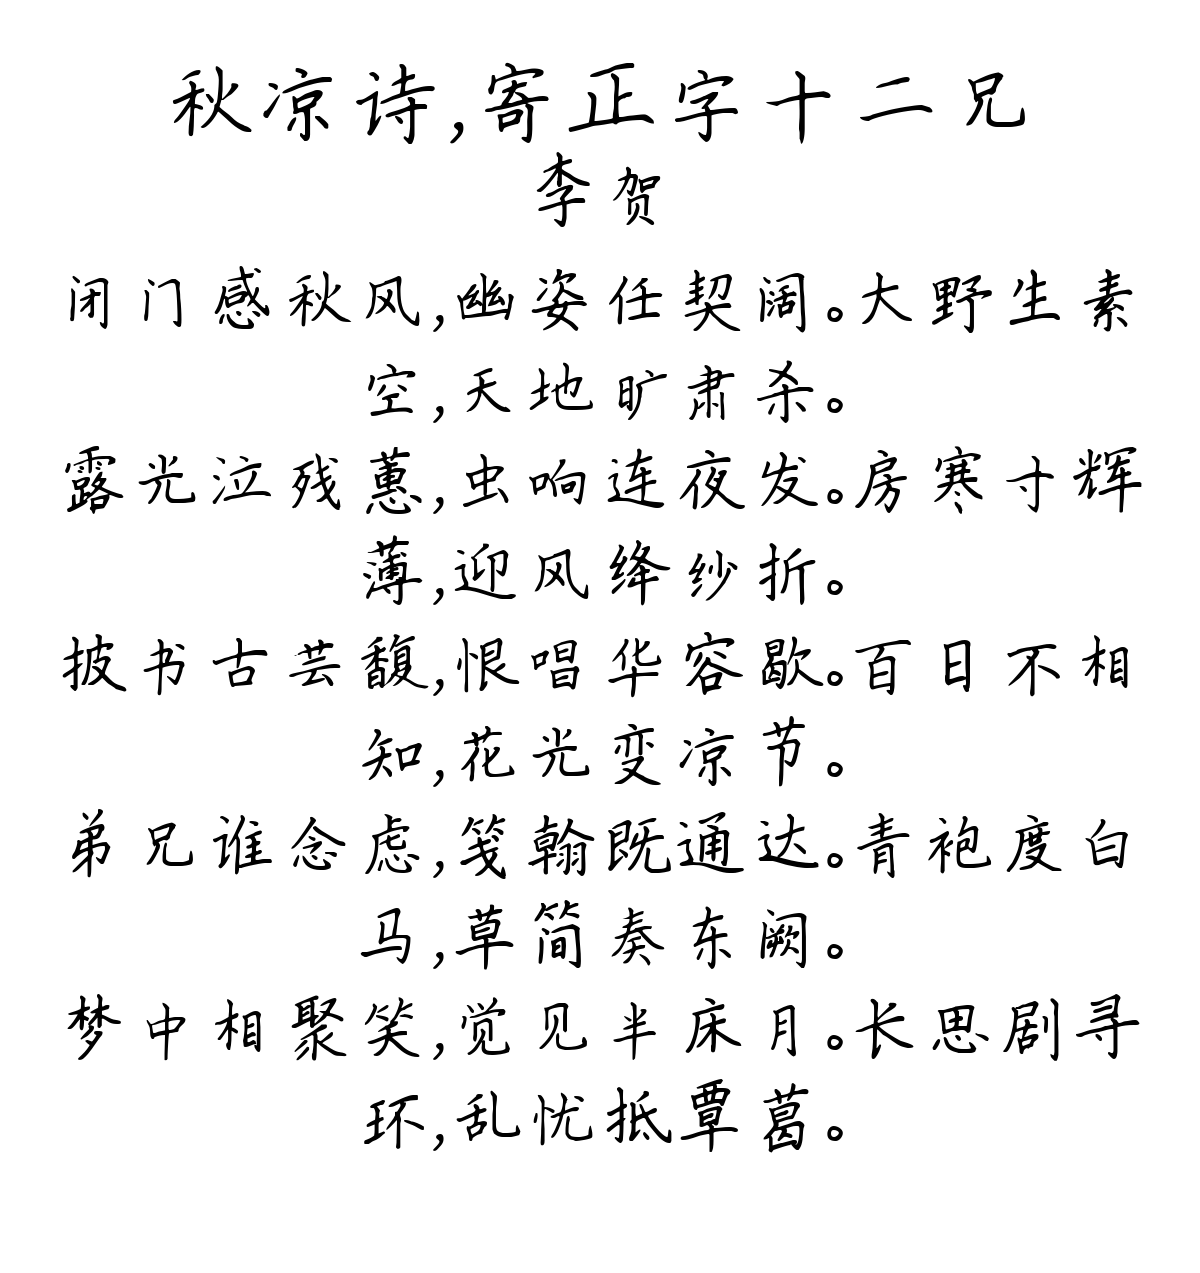 秋凉诗,寄正字十二兄
李贺
闭门感秋风,幽姿任契阔。大野生素
空,天地旷肃杀。
露光泣残蕙,虫响连夜发。房寒寸辉
薄,迎风绛纱折。
披书古芸馥,恨唱华容歇。百日不相
知,花光变凉节。
弟兄谁念虑,笺翰既通达。青袍度白
马,草简奏东阙。
梦中相聚笑,觉见半床月。长思剧寻
环,乱忧抵覃葛。